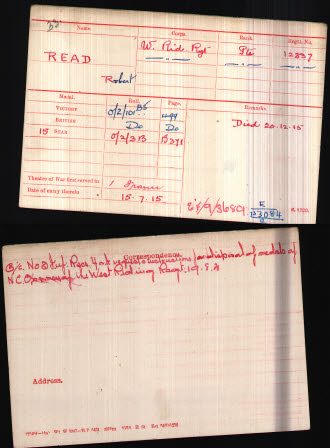 Name.
Corps.
Rank.
Regtl. No.
READ
W. Rid. Rgt
Pte
12837
—„—
—„—
—„—
Robert
Medal.
Roll.
Page.
Remarks.
VICTORY
O/2/101 B5
499
Died 20.12.15
BRITISH
Do
Do
15 STAR
O/2/2B
B271
Theatre of War first served in
1 France
Date of entry therein
15.7.15
E
B3084
Correspondence.
O/c. No 2 Inf. Recs York requests instructions for disposal of medals of
N.C.O the West Riding Regt. 19.5.
Address.